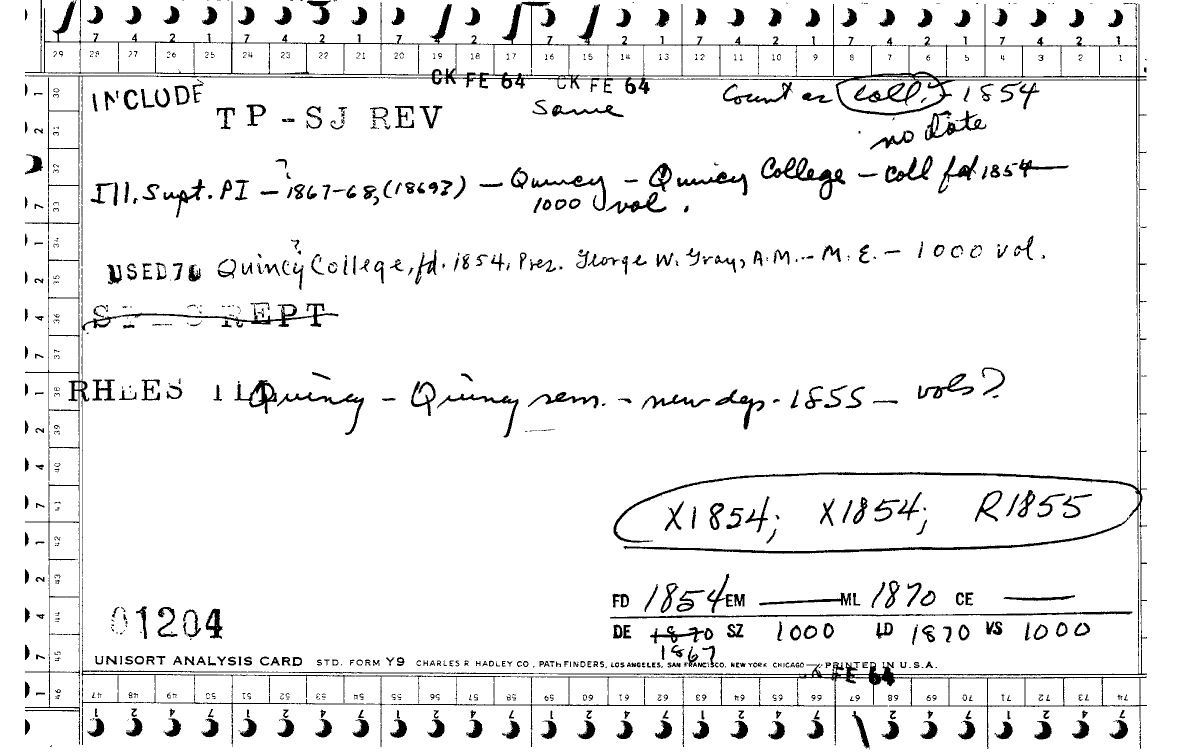 1 7 4 2 1 7 4 2 1 7 4 2 1 7 4 2 1 7 4 2 1 7 4 2 1
29 28 27 26 25 24 23 22 21 20 19 18 17 16 15 14 13 12 11 10 9 8 7 6 5 4 3 2 1
CK FE 64 CK FE 64
INCLUDE
TP-SJ REV
Same
Count as coll. - 1854
no date
?
Ill. Supt. PI - 1867-68, (1869?) - Quincy - Quincy College - coll fd 1854
1000 vol.
?
USED 70 Quincy College, fd. 1854, Prez. George W. Gray, A.M. - M.E. - 1000 vol.
REPT
RHEES ILL Quincy - Quincy sem. - new dep. 1855 - vols?
X1854; X1854; R1855
FD 1854 EM — ML 1870 CE —
DE 1870 SZ 1000 LD 1870 VS 1000
1867
01204
UNISORT ANALYSIS CARD STD. FORM Y9 CHARLES R HADLEY CO., PATHFINDERS, LOS ANGELES, SAN FRANCISCO, NEW YORK CHICAGO — PRINTED IN U.S.A.
FE 64
30 31 32 33 34 35 36 37 38 39 40 41 42 43 44 45 46
47 48 49 50 51 52 53 54 55 56 57 58 59 60 61 62 63 64 65 66 67 68 69 70 71 72 73 74